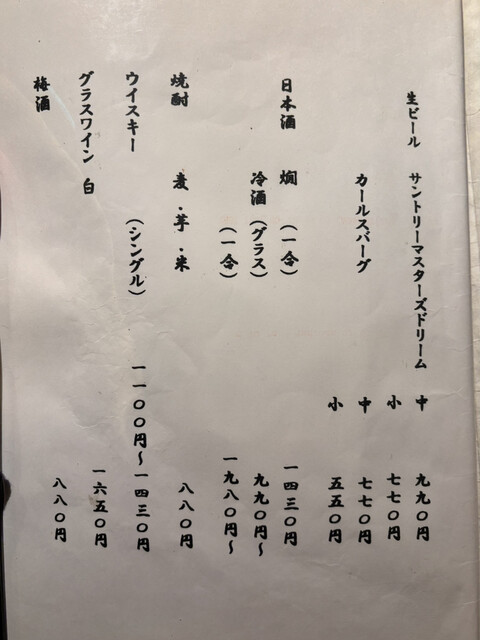 生ビール サントリーマスターズドリーム 中 九九〇円
小 七七〇円
カールスバーグ 中 七七〇円
小 五五〇円
日本酒 燗 (一合) 一四三〇円
冷酒 (グラス) 九九〇円～
(一合) 一九八〇円～
焼酎 麦・芋・米 八八〇円
ウイスキー (シングル) 一一〇〇円～一四三〇円
グラスワイン 白 一六五〇円
梅酒 八八〇円